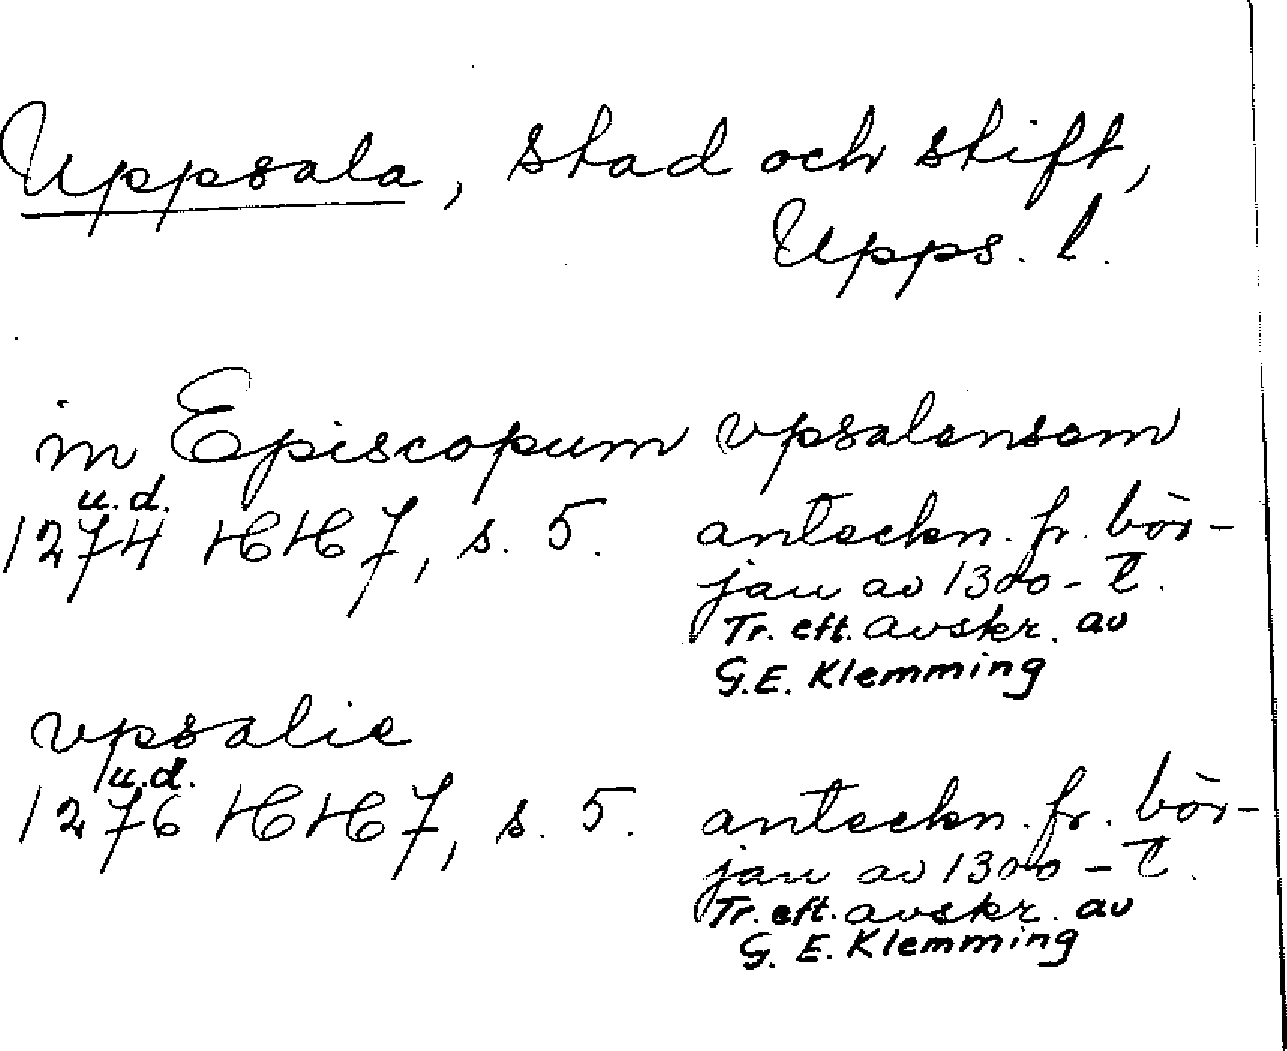 Uppsala, stad och stift,
Upps. l.
in Episcopum vpsalensem
u.d.
1274 HH 7, s. 5. anteckn. fr. bör-
jan av 1300-t.
Tr. eft. avskr. av
G.E. Klemming
vpsalie
u.d.
1276 HH 7, s. 5. anteckn. fr. bör-
jan av 1300-t.
Tr. eft. avskr. av
G. E. Klemming